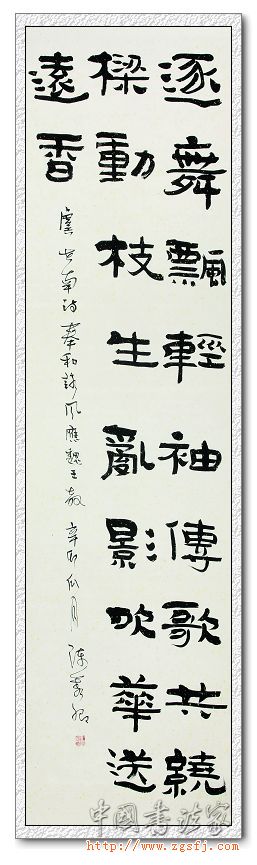 逐舞飄輕袖傳歌共繞
樑動枝生亂影吹華送
遠香
虞世南詩奉和詠風應魏王教 辛卯
中國書法家
http://www.zgsfj.com